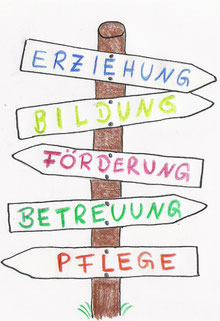 ERZIEHUNG
BILDUNG
FÖRDERUNG
BETREUUNG
PFLEGE